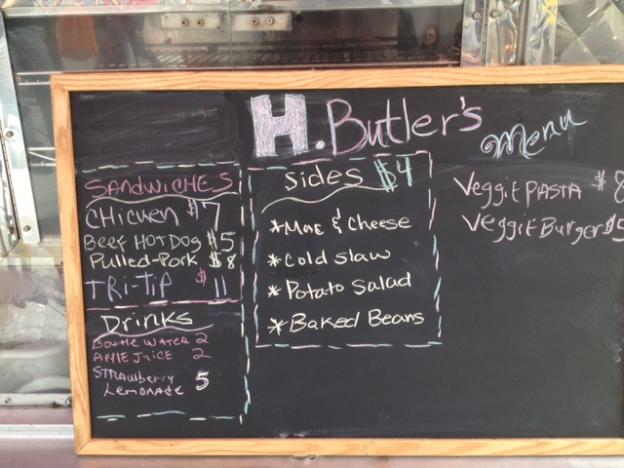 H. Butler's
Menu
SANDWICHES
CHICKEN $7
BEEF HOT DOG $5
Pulled-Pork $8
TRI-TIP $11
Drinks
Bottle WATER 2
APPLE JUICE 2
STRAWberry
Lemonade 5
Sides $4
*Mac & Cheese
*Cold slaw
*Potato Salad
*Baked Beans
VeggiE PASTA $8
VeggiE Burger $5